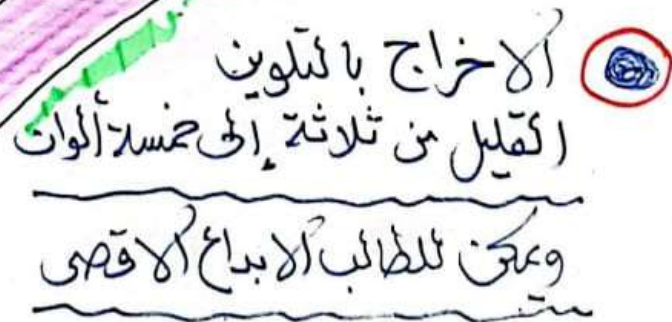 الاخراج بالتلوين
القليل من ثلاثة إلى خمسة ألوان
ويمكن للطالب الابداع الاقصى